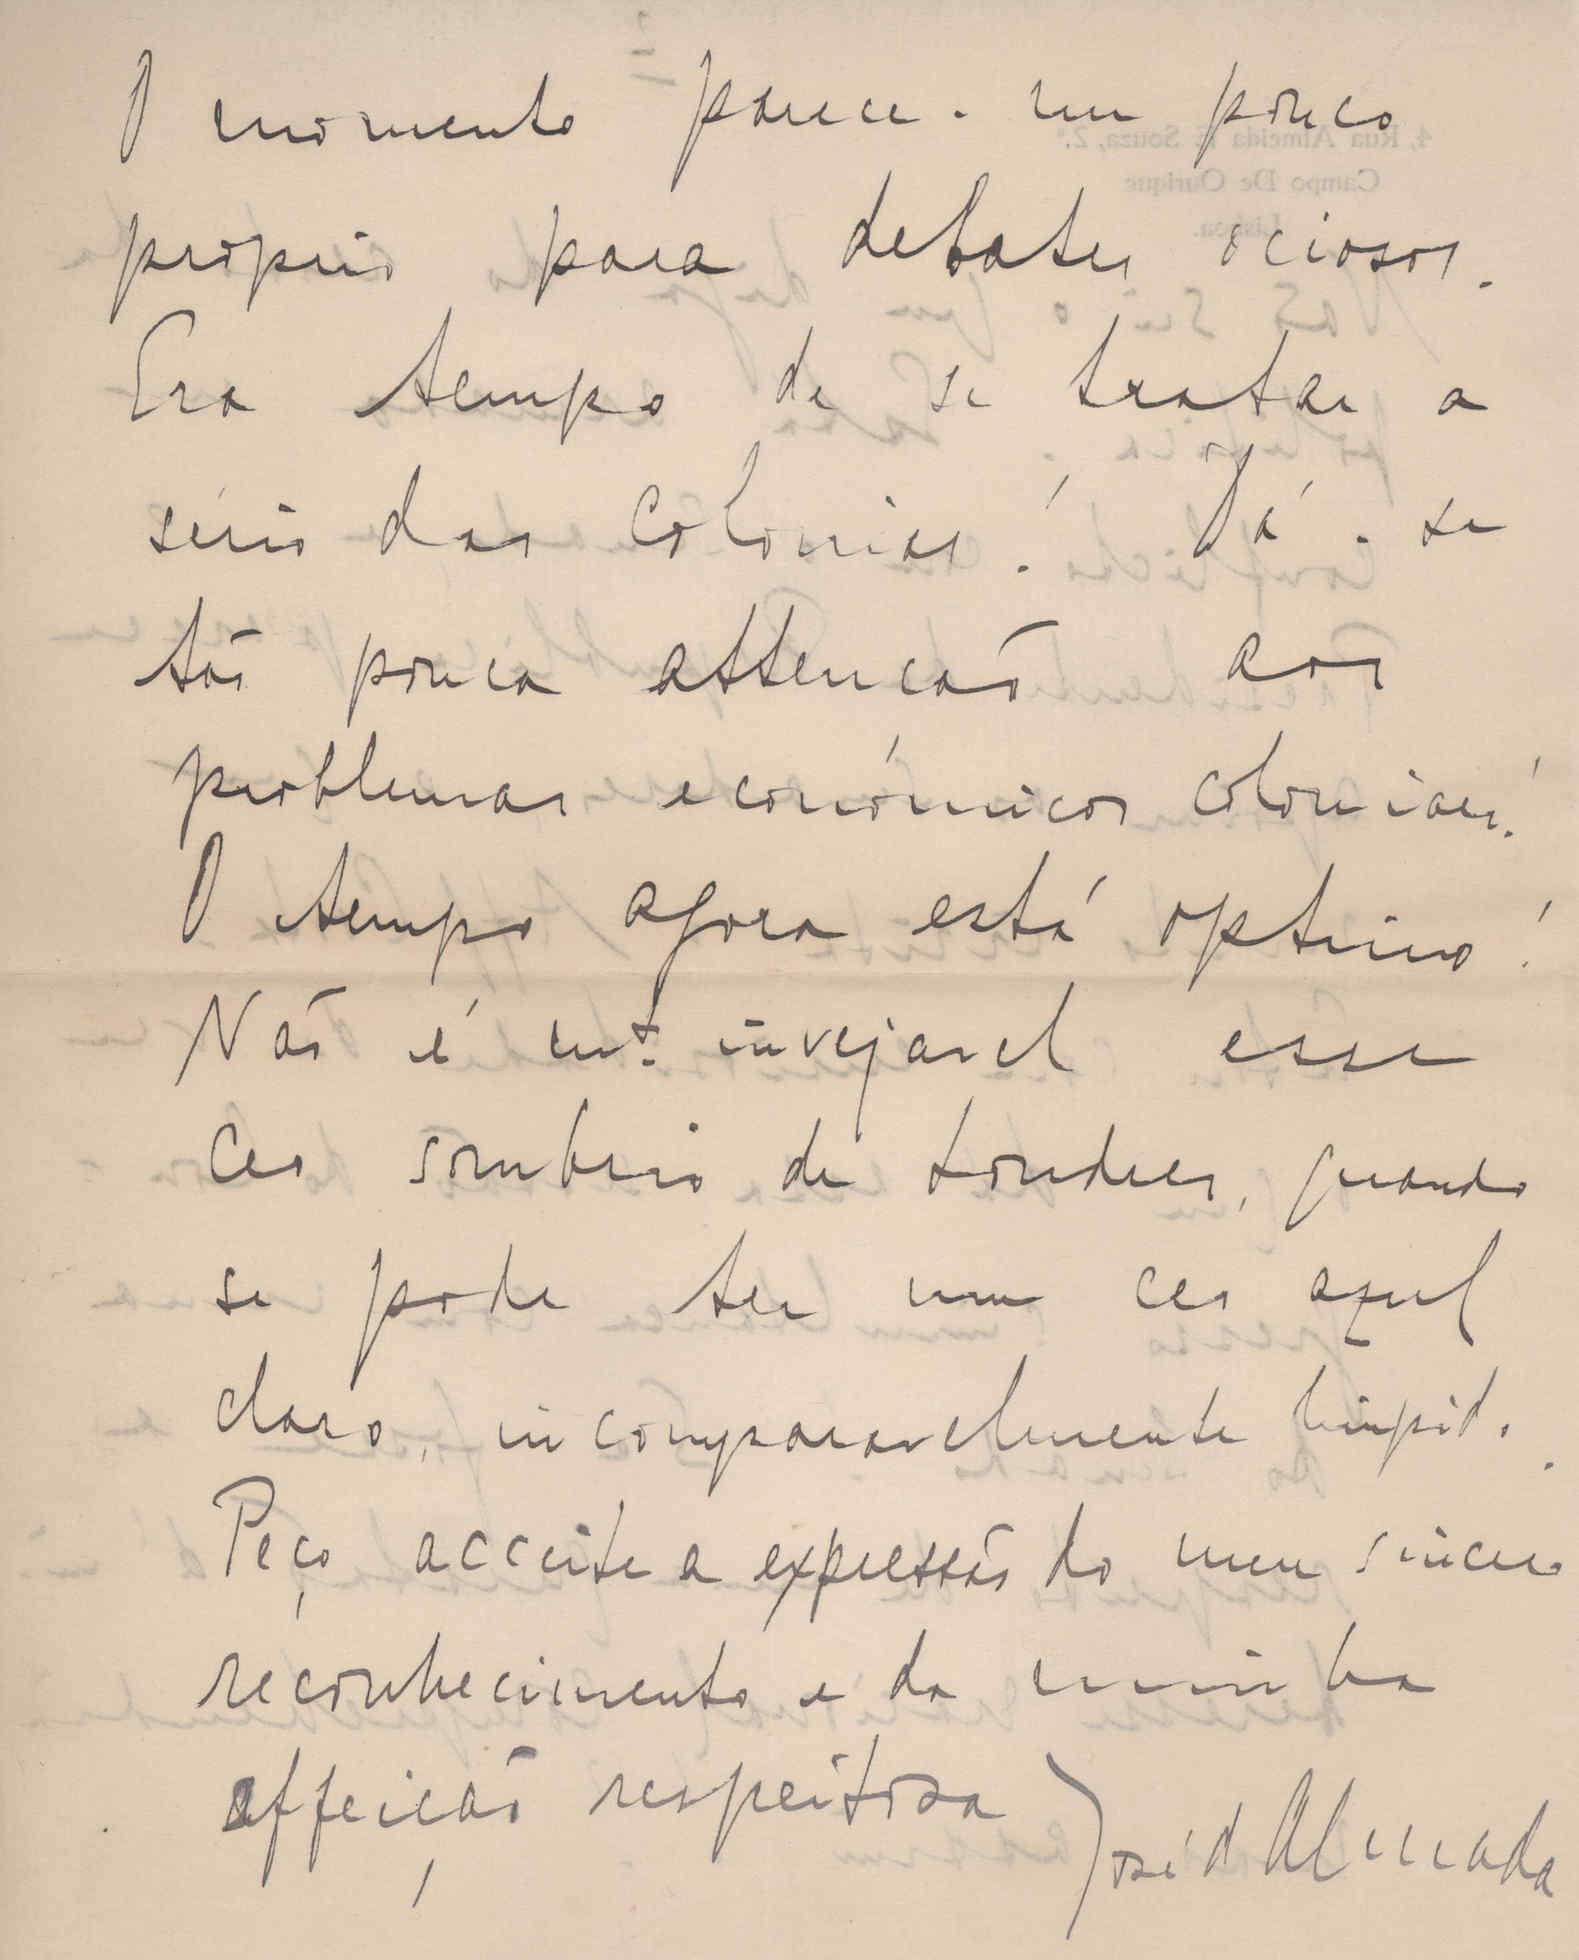 O momento parece-me pouco
proprio para debates ociosos.
Era tempo de se tratar a
sério das Colonias! Dá-se
tão pouca attencão aos
problemas económicos coloniaes!
O tempo agora está optimo!
Não é mt.º invejavel esse
Ceo sombrio de Londres, quando
se pode ter um ceo azul
claro, incomparavelmente limpido.
Peço acceite a expressão do meu sincero
reconhecimento e da minha
affeição respeitosa José d'Almada